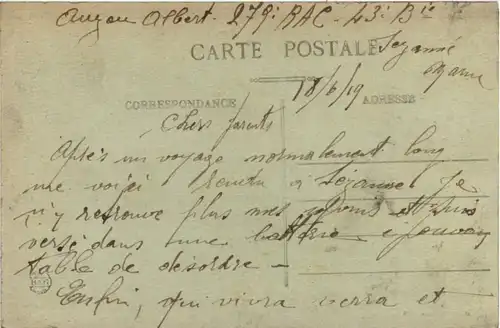 Albert. 279e RAC - 43e Bie
CARTE POSTALE
Sezanne
Marne
18/6/19
CORRESPONDANCE
ADRESSE
Chers parents
Après un voyage normalement long
me voici rendu à Sezanne Je
n'y retrouve plus mes et suis
versé dans une batterie
table de désordre -
Enfin, qui vivra verra et